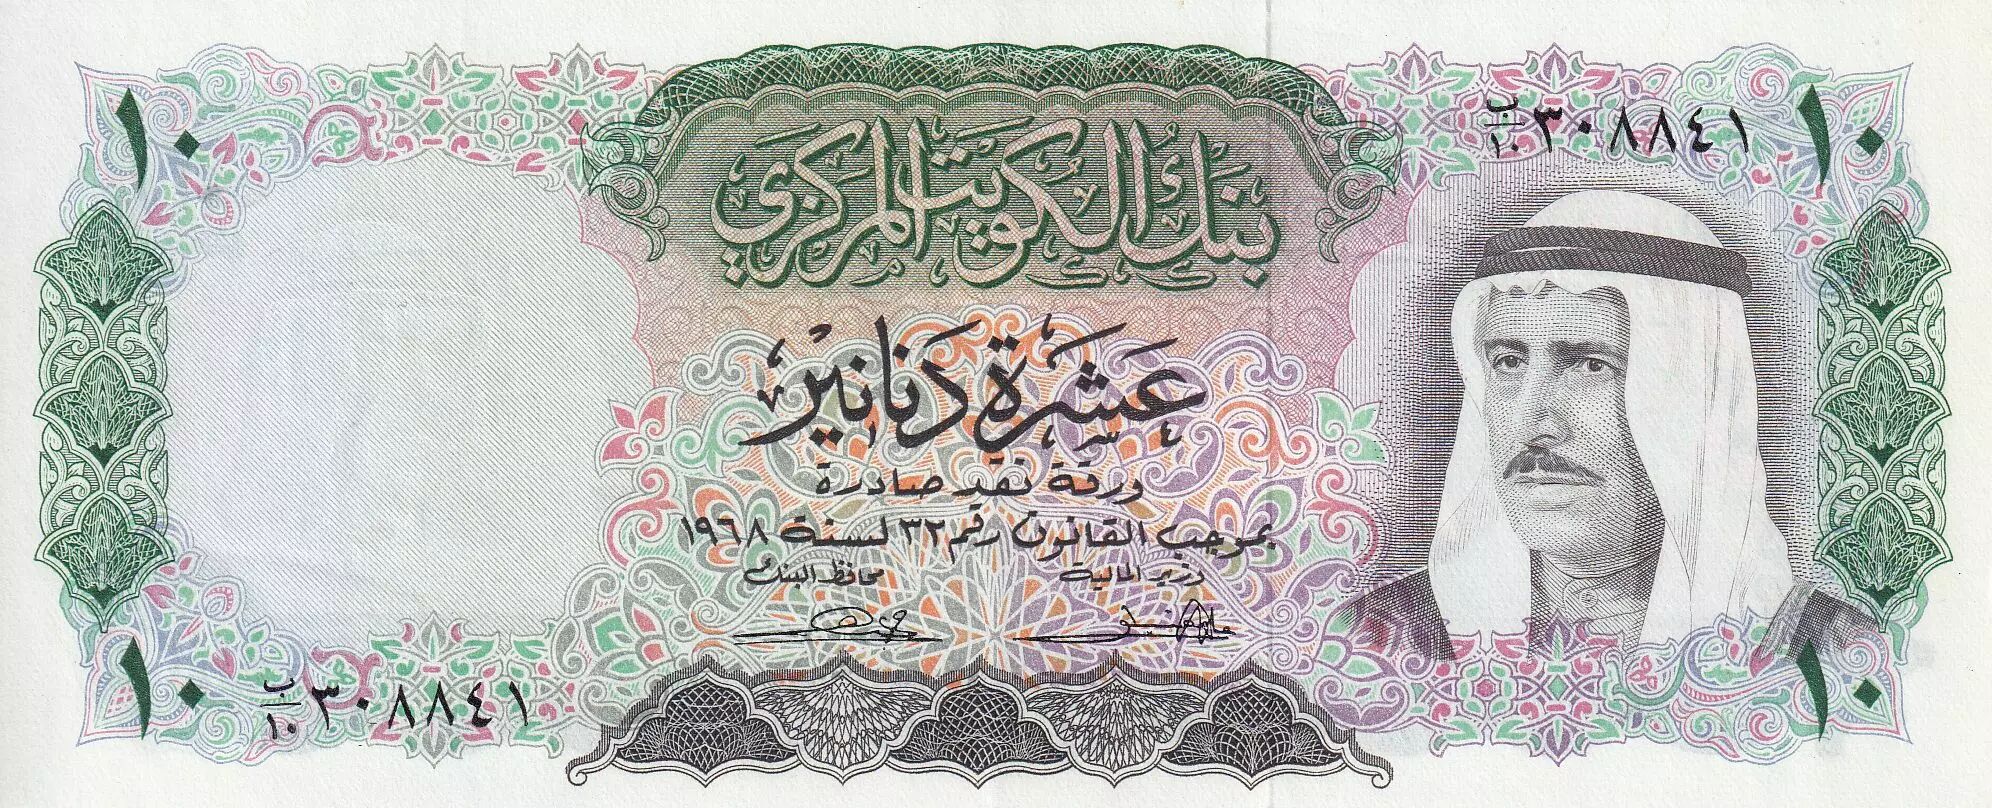 ١٠
ب/١٠ ٣٠٨٨٤١
١٠
بنك الكويت المركزي
عشرة دنانير
ورقة نقد صادرة
بموجب القانون رقم ٣٢ لسنة ١٩٦٨
وزير المالية محافظ البنك
١٠
ب/١٠ ٣٠٨٨٤١
١٠